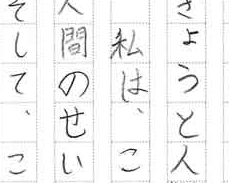 きょうと人
私は、こ
人間のせい
そして、こ